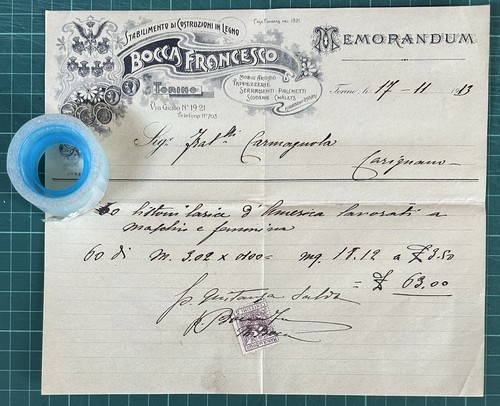 Casa Fondata nel 1821
Stabilimento di Costruzioni in Legno
Bocca Francesco
Memorandum
Torino
Mobili Artistici
Tappezzerie
Serramenti - Palchetti
Via Giulio N° 19-21
Telefono N° 703
Torino, li 17-11 1913
Sigi Frat lli Carmagnola
Carignano
60 listoni larice d'America lavorati a
maschio e femmina
60 di M. 3.02 x 0.100 = mq. 18.12 a £ 3.50
= £ 63.00
p. quitanza saldo